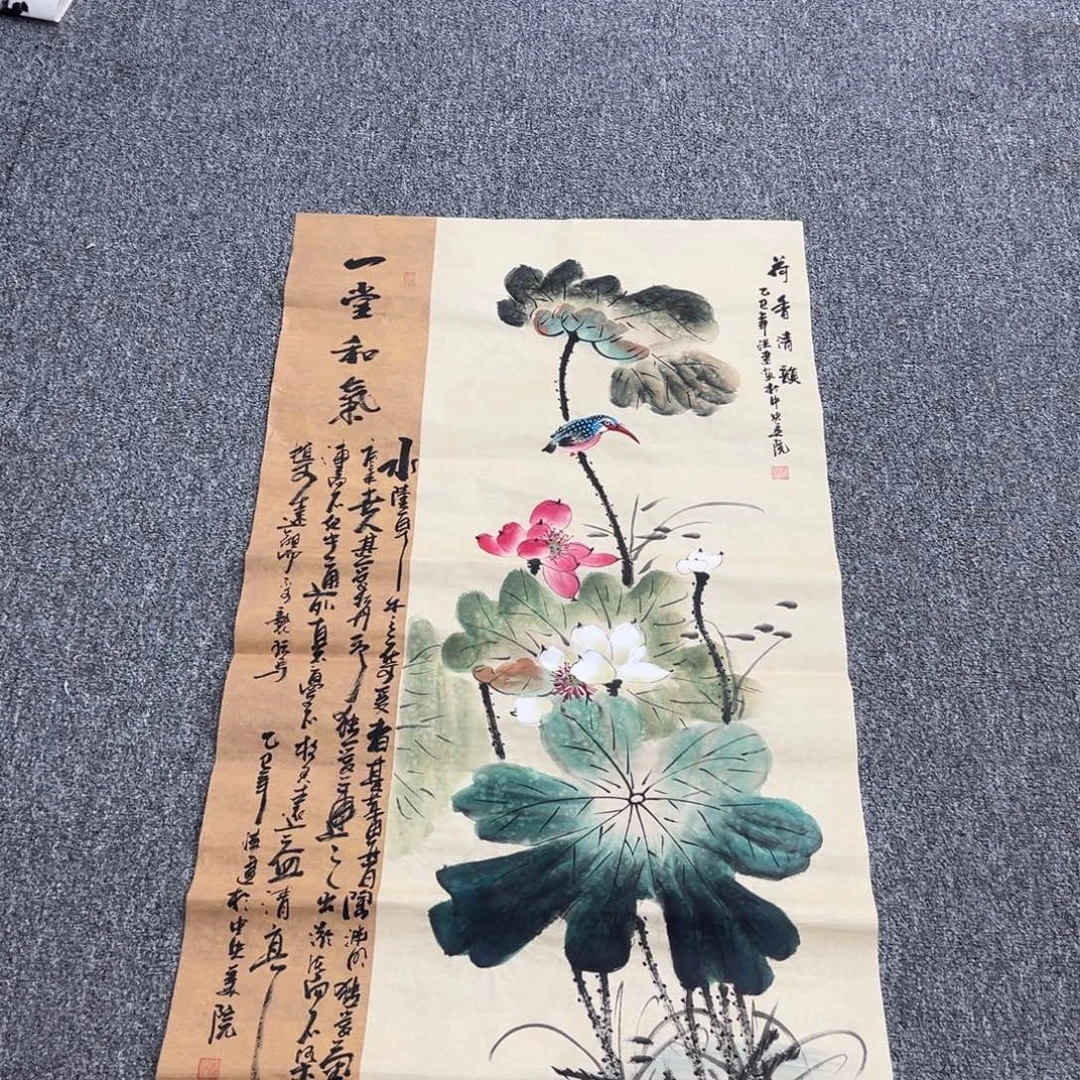 荷香清韻
乙巳年 於中央美院
一堂和氣
水陸草木之花可愛者甚蕃晉陶淵明獨愛菊
世人甚愛牡丹予獨愛蓮之出淤泥而不染
而不妖中通外直不蔓不枝香遠益清
植可遠觀而不可褻玩焉
乙巳年 於中央美院